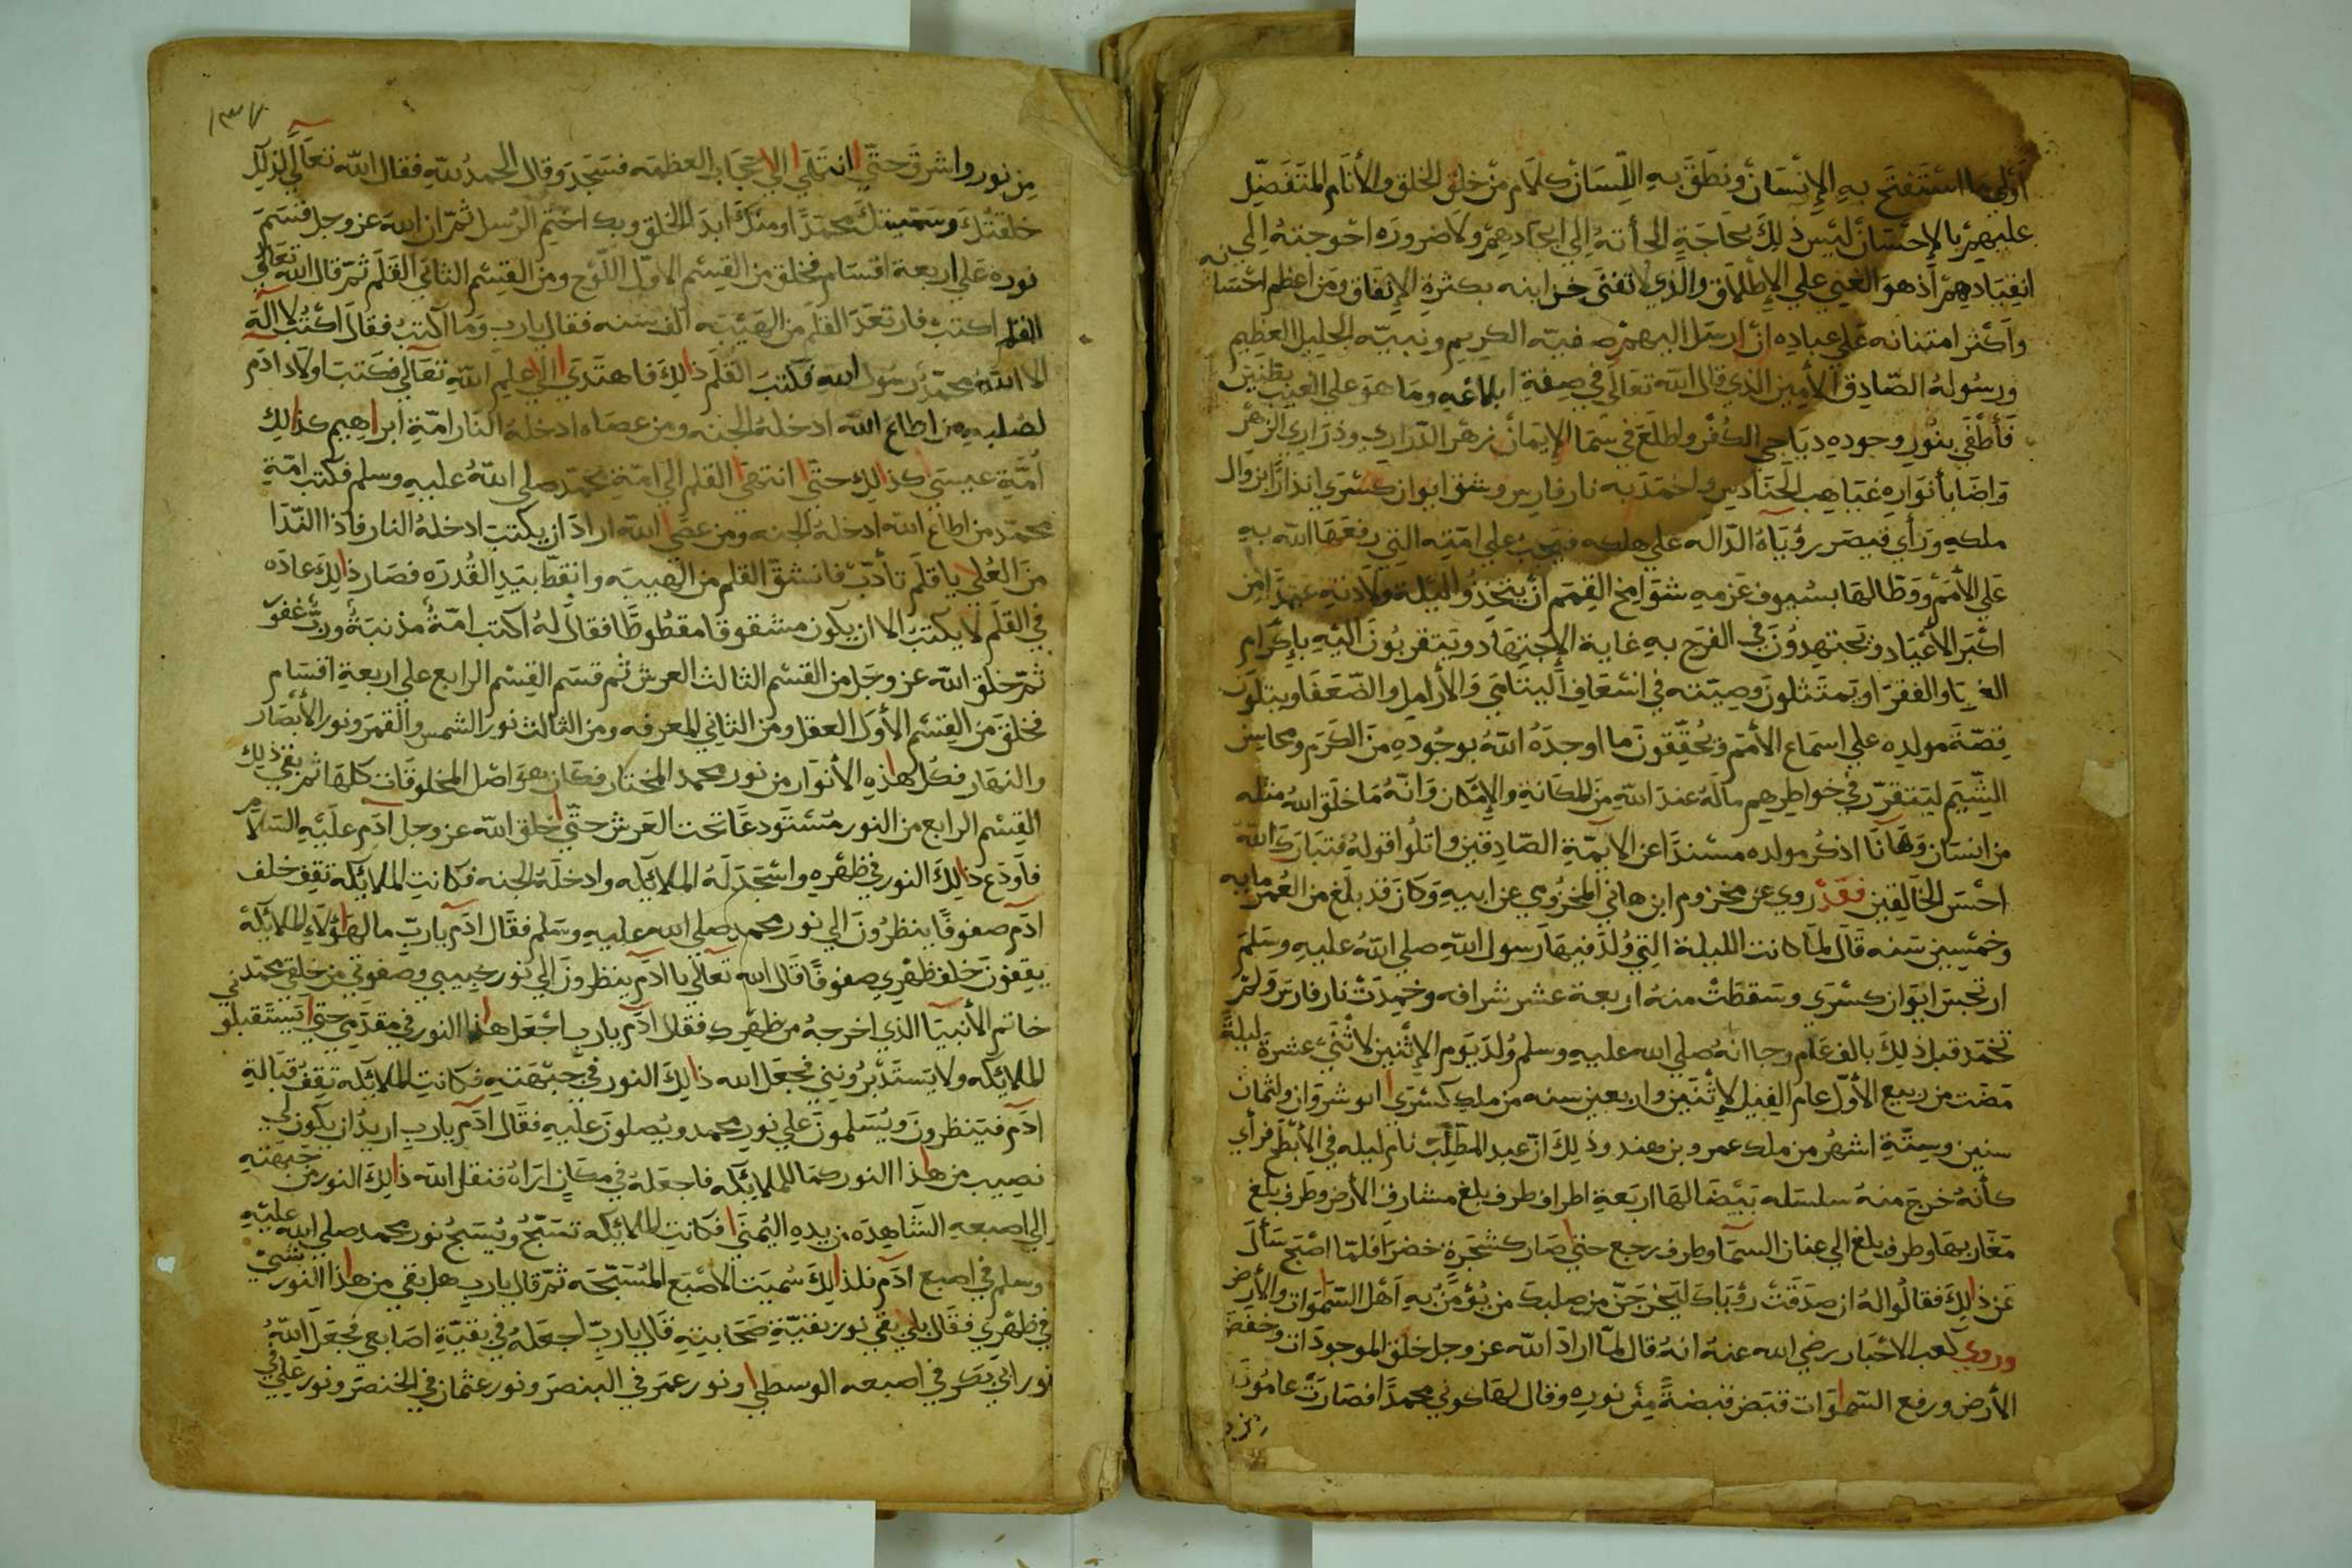 أولى ما استفتح به الإنسان ونطق به اللسان كلام من خلق الخلق والأنام المتفضل
عليهم بالإحسان ليس ذلك بحاجة الجأته إلي ايجادهم ولا ضروره احوجته إلى
انقيادهم اذ هو الغني علي الإطلاق والذي لا تفنى خزاينه بكثرة الإنفاق ومن اعظم احسانه
واكثر امتنانه علي عباده ان ارسل اليهم صفيه الكريم ونبيه الجليل العظيم
ورسوله الصادق الأمين الذي قال الله تعالى في صفة ابلاغه وما هو على الغيب بظنين
فأطفي بنور وجوده دياجي الكفر واطلع في سما الإيمان زهر الدراري وذراري الزهر
واضا بأنواره غياهب الحنادس واخمد به نار فارس وشق ايوان كسرى انذارا بزوال
ملكه ورأي قيصر رؤياه الداله علي هلكه فيجب علي امته التي رفعها الله به
علي الأمم ووطا لها بسيوف عزمه شوامخ القمم أن يتخذوا ليلة ولادته عيدا من
اكبر الأعياد ويجتهدون في الفرح به غاية الإجتهاد ويتقربون اليه بإكرام
الغربا والفقرا ويمتثلون وصيته في اسعاف اليتامي والأرامل والضعفا ويتلون
قصة مولده علي اسماع الأمم ويحققون ما اوجده الله بوجوده من الكرم ومحاسن
الشيم ليتقرر في خواطرهم ماله عند الله من المكانة والإمكان وانه ما خلق الله مثله
من انسان وها أنا اذكر مولده مسندا عن الايمة الصادقين واتلوا قوله فتبارك الله
احسن الخالقين فقد روي عن مخزوم ابن هاني المخزومي عن ابيه وكان قد بلغ من العمر مايه
وخمسين سنه قال لما كانت الليلة التي ولد فيها رسول الله صلي الله عليه وسلم
ارتجس ايوان كسرى وسقطت منه اربعة عشر شرافه وخمدت نار فارس ولم
تخمد قبل ذلك بالف عام وجا انه صلي الله عليه وسلم ولد يوم الإثنين لاثنتي عشرة ليلة
مضت من ربيع الأول عام الفيل لإثنين واربعين سنه من ملك كسرى انوشروان ولثمان
سنين وستة اشهر من ملك عمرو بن هند وذلك ان عبد المطلب نام ليله في الأبطح فرأي
كأنه خرج منه سلسله بيضا لها اربعة اطراف طرف بلغ مشارق الأرض وطرف بلغ
مغاربها وطرف بلغ الي عنان السما وطرف رجع حتي صار كشجرة خضرا فلما اصبح سأل
عن ذلك فقالوا له ان صدقت رؤياك ليخرجن من صلبك من يؤمن به اهل السموات والأرض
وروي كعب الاحبار رضي الله عنه انه قال لما اراد الله عز وجل خلق الموجودات وخفض
الأرض ورفع السموات قبض قبضة من نوره وقال لها كوني محمدا فصارت عامودا
من نور واشرق حتي انتهي الي حجاب العظمه فسجد وقال الحمد لله فقال الله تعالي لذلك
خلقتك وسميتك محمدا ومنك ابدا الخلق وبك اختم الرسل ثم ان الله عز وجل قسم
نوره علي اربعة اقسام فخلق من القسم الاول اللوح ومن القسم الثاني القلم ثم قال الله تعالي
للقلم اكتب فارتعد القلم من الهيبه الف سنه فقال يارب وما اكتب فقال اكتب لا اله
الا الله محمد رسول الله فكتب القلم ذلك فاهتدي الي علم الله تعالي فكتب اولاد ادم
لصلبه من اطاع الله ادخله الجنه ومن عصاه ادخله النار امة ابراهيم كذلك
أمة عيسي كذلك حتي انتهي القلم الي امة محمد صلي الله عليه وسلم فكتب امة
محمد من اطاع الله ادخله الجنه ومن عصي الله اراد ان يكتب ادخله النار فاذا الندا
من العلي يا قلم تأدب فانشق القلم من الهيبه وانقط بيد القدره فصار ذلك عاده
في القلم لا يكتب الا ان يكون مشقوقا مقطوطا فقال له اكتب امة مذنبة ورب غفور
ثم خلق الله عز وجل من القسم الثالث العرش ثم قسم القسم الرابع علي اربعة اقسام
فخلق من القسم الأول العقل ومن الثاني المعرفه ومن الثالث نور الشمس والقمر ونور الأبصار
والنهار فكل هذه الأنوار من نور محمد المختار فكان هو اصل المخلوقات كلها ثم بقي ذلك
القسم الرابع من النور مستودعا تحت العرش حتي خلق الله عز وجل آدم عليه السلام
فاودع ذلك النور في ظهره واسجد له الملايكه وادخله الجنه فكانت الملايكه تقف خلف
ادم صفوفا ينظرون الي نور محمد صلي الله عليه وسلم فقال ادم يارب مال هؤلاء الملايكة
يقفون خلف ظهري صفوفا قال الله تعالي يا ادم ينظرون الي نور حبيبي وصفوتي من خلقي محمد
خاتم الأنبيا الذي اخرجه من ظهرك فقال ادم يارب اجعل هذا النور في مقدمي حتي تستقبلوني
الملايكه ولا يستدبرونني فجعل الله ذلك النور في جبهته فكانت الملايكه تقف قبالة
ادم فينظرون ويسلمون علي نور محمد ويصلون عليه فقال ادم يارب اريد ان يكون لي
نصيب من هذا النور كما للملايكه فاجعله في مكان اراه فنقل الله ذلك النور من جبهته
الي اصبعه الشاهده من يده اليمني فكانت الملايكه تسبح ويسبح نور محمد صلي الله عليه
وسلم في اصبع ادم فلذلك سميت الاصبع المسبحه ثم قال يارب هل بقي من هذا النور شي
في ظهري فقال بلي بقي نور بقية صحابته قال يارب اجعله في بقية اصابعي فجعل الله
نور ابي بكر في اصبعه الوسطي ونور عمر في البنصر ونور عثمان في الخنصر ونور علي في